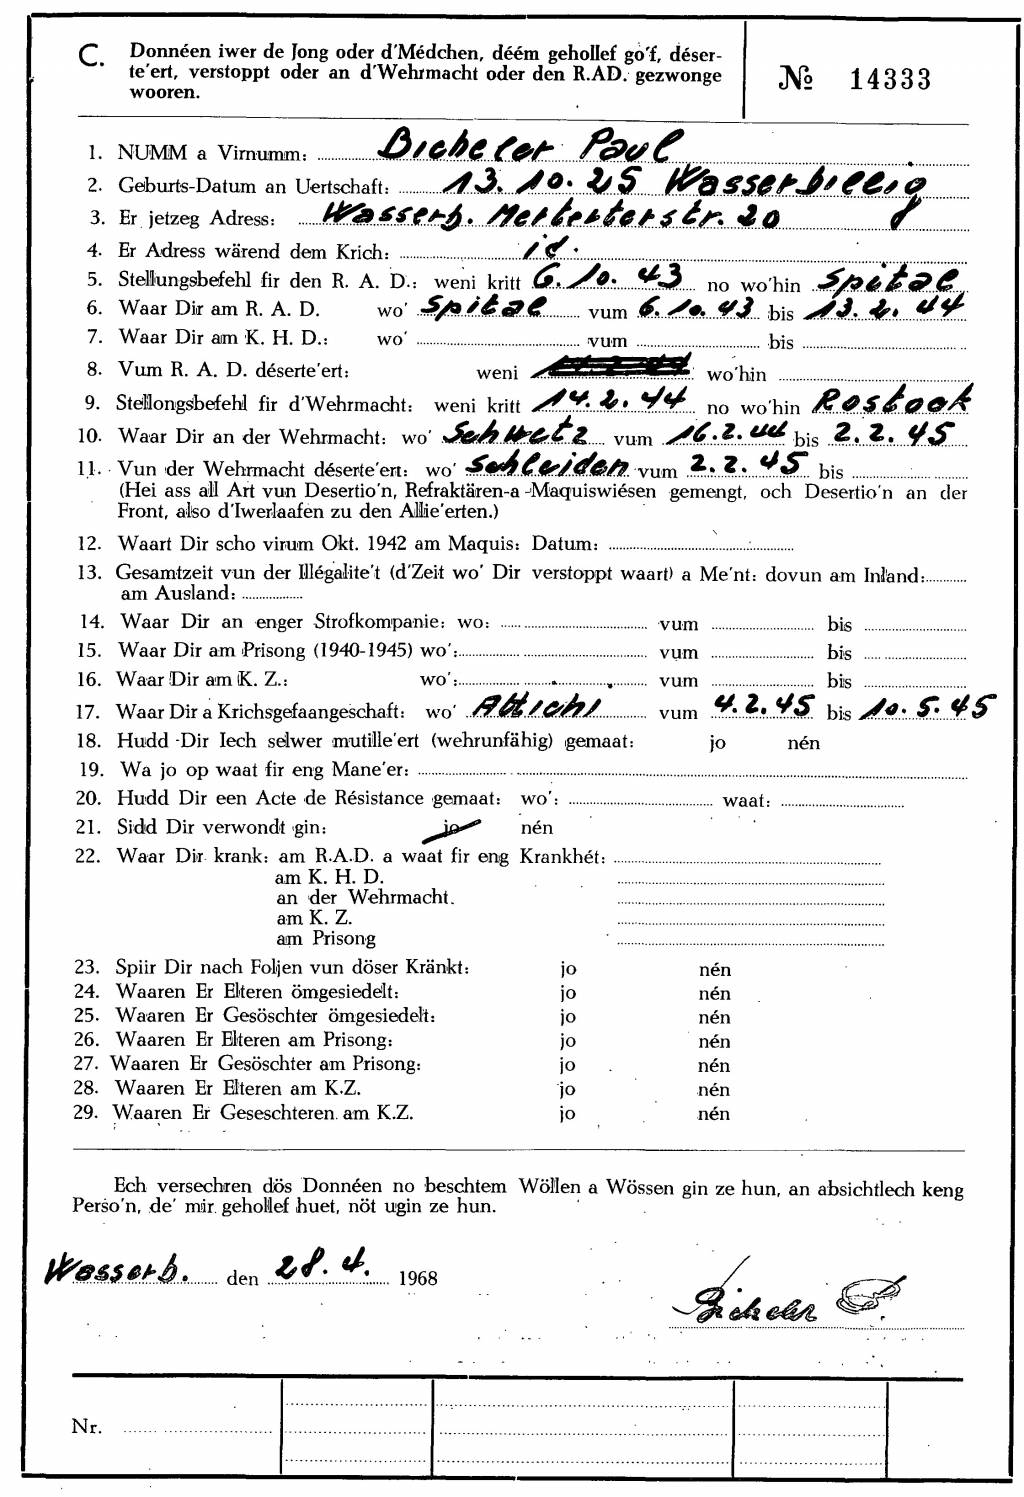 C. Donnéen iwer de Jong oder d'Médchen, déém gehollef go'f, déser-
te'ert, verstoppt oder an d'Wehrmacht oder den R.AD. gezwonge
wooren.
№ 14333
1. NUMM a Virnumm: Bicheler Paul
2. Geburts-Datum an Uertschaft: 13.10.25 Wasserbillig
3. Er jetzeg Adress: Wasserb. Merterterstr. 20
4. Er Adress wärend dem Krich: id.
5. Stellungsbefehl fir den R. A. D.: weni kritt 6.10.43 no wo'hin Spital
6. Waar Dir am R. A. D. wo' Spital vum 6.10.43 bis 13.2.44
7. Waar Dir am K. H. D.: wo' vum bis
8. Vum R. A. D. déserte'ert: weni wo'hin
9. Stellongsbefehl fir d'Wehrmacht: weni kritt 14.2.44 no wo'hin Rostook
10. Waar Dir an der Wehrmacht: wo' Schwetz vum 16.2.44 bis 2.2.45
11. Vun der Wehrmacht déserte'ert: wo' Schleiden vum 2.2.45 bis
(Hei ass all Art vun Desertio'n, Refraktären-a -Maquiswiésen gemengt, och Desertio'n an der
Front, also d'Iwerlaafen zu den Allie'erten.)
12. Waart Dir scho virum Okt. 1942 am Maquis: Datum:
13. Gesamtzeit vun der Illégalite't (d'Zeit wo' Dir verstoppt waart) a Me'nt: dovun am Inland:
am Ausland:
14. Waar Dir an enger Strofkompanie: wo: vum bis
15. Waar Dir am Prisong (1940-1945) wo': vum bis
16. Waar Dir am K. Z.: wo': vum bis
17. Waar Dir a Krichsgefaangeschaft: wo' Attichi vum 4.2.45 bis 10.5.45
18. Hudd Dir Iech selwer mutille'ert (wehrunfähig) gemaat: jo nén
19. Wa jo op waat fir eng Mane'er:
20. Hudd Dir een Acte de Résistance gemaat: wo': waat:
21. Sidd Dir verwondt gin: jo nén
22. Waar Dir krank: am R.A.D. a waat fir eng Krankhét:
am K. H. D.
an der Wehrmacht.
am K. Z.
am Prisong
23. Spiir Dir nach Foljen vun döser Kränkt: jo nén
24. Waaren Er Elteren ömgesiedelt: jo nén
25. Waaren Er Gesöschter ömgesiedelt: jo nén
26. Waaren Er Elteren am Prisong: jo nén
27. Waaren Er Gesöschter am Prisong: jo nén
28. Waaren Er Elteren am K.Z. jo nén
29. Waaren Er Geseschteren am K.Z. jo nén
Ech versechren dös Donnéen no beschtem Wöllen a Wössen gin ze hun, an absichtlech keng
Perso'n, de' mir gehollef huet, nöt ugin ze hun.
Wasserb. den 28.4. 1968
Bicheler P.
Nr.